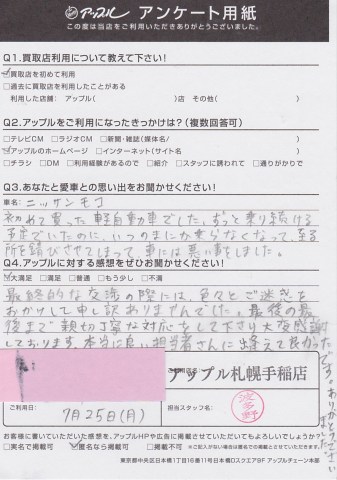 アップル アンケート用紙
この度は当店をご利用いただきありがとうございました。
Q1.買取店利用について教えて下さい！
☑買取店を初めて利用
□過去に買取店を利用したことがある
利用した店舗： アップル（ ）店 その他（ ）
Q2.アップルをご利用になったきっかけは？（複数回答可）
□テレビCM □ラジオCM □新聞・雑誌（媒体名/ ）
☑アップルのホームページ □インターネット（サイト名 ）
□チラシ □DM □利用経験があるので □紹介 □スタッフに誘われて □通りがかりで
Q3.あなたと愛車との思い出をお聞かせください！
車名：ニッサンモコ
初めて買った軽自動車でした。ずっと乗り続ける
予定でいたのに、いつのまにか乗らなくなって、至る
所を錆びさせてしまって、車には悪い事をしました。
Q4.アップルに対する感想をぜひお聞かせください！
☑大満足 □満足 □普通 □もう少し □不満
最終的な交渉の際には、色々とご迷惑を
おかけして申し訳ありませんでした。最後の最
後まで親切丁寧な対応をして下さり大変感謝
しております。本当に良い担当者さんに逢えて良かったです。ありがとうございました。
アップル札幌手稲店
ご利用日： 7月25日(月)
担当スタッフ名： 波多野
お客様に書いていただいた感想を、アップルHPや広告に掲載させていただいてもよろしいでしょうか？
□実名で掲載可 ☑匿名なら掲載可 □掲載不可
※ご記入がない場合は匿名での掲載とさせていただきます
東京都中央区日本橋1丁目16番11号日本橋Dスクエア9F アップルチェーン本部